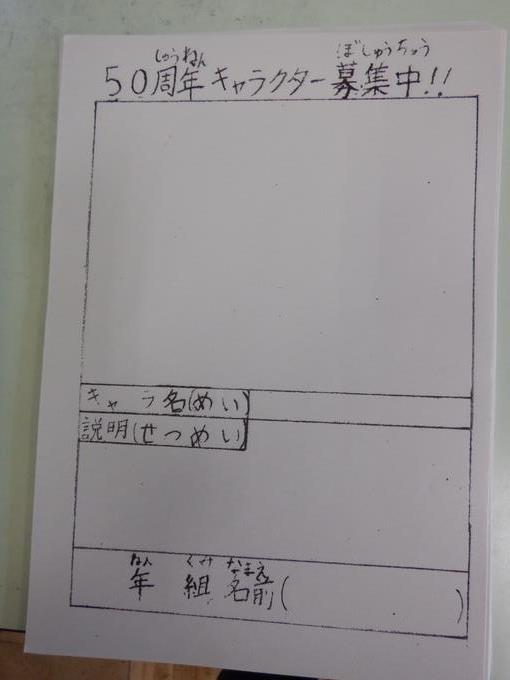 しゅうねん ぼしゅうちゅう
50周年キャラクター募集中!!
キャラ名(めい)
説明(せつめい)
ねん くみ なまえ
年 組 名前( )